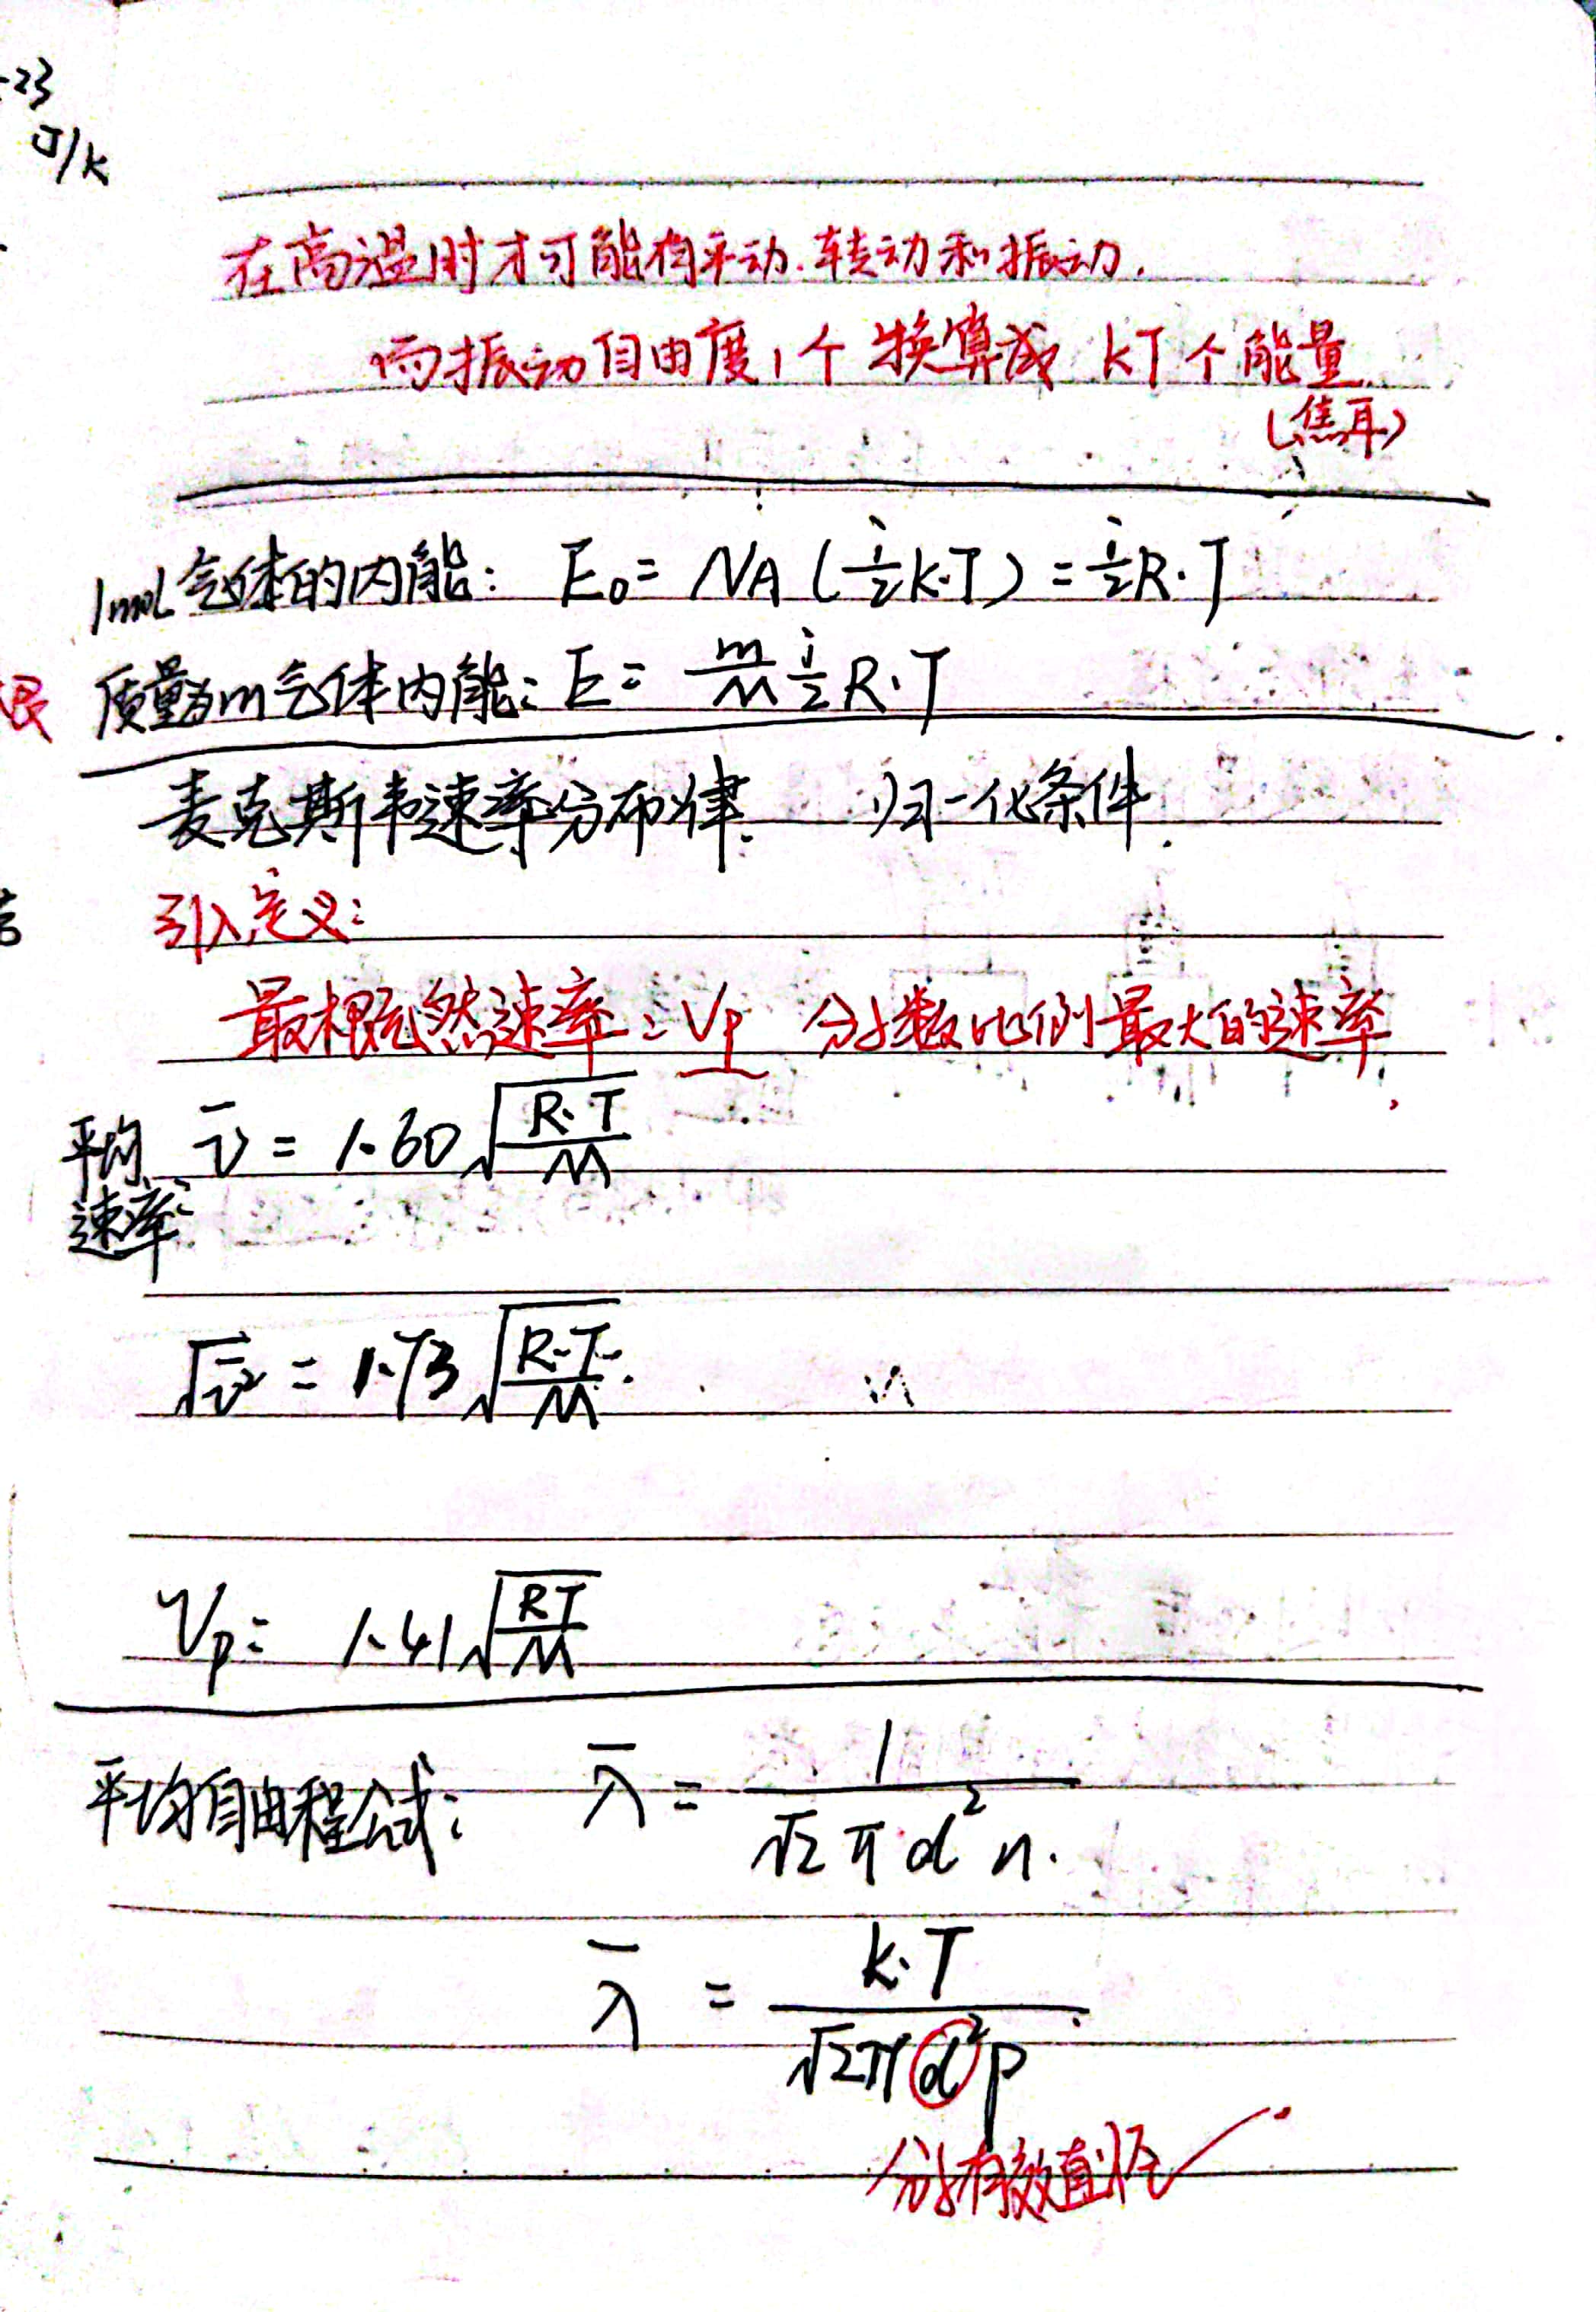 -23
J/k
在高温时才可能有平动.转动和振动.
而振动自由度1个 换算成 kT个能量.
(焦耳)
1mol气体的内能: E₀ = NA (i/2 k·T) = i/2 R·T
质量为m气体内能: E = m/M i/2 R·T
麦克斯韦速率分布律. 归一化条件.
引入定义:
最概然速率: Vp 分子数比例最大的速率.
平均速率: v̄ = 1.60 √(R·T/M)
√v̄² = 1.73 √(R·T/M).
Vp = 1.41 √(RT/M)
平均自由程公式: λ̄ = 1/(√2 π d² n).
λ̄ = k·T/(√2 π d² p)
分子有效直径 ✓